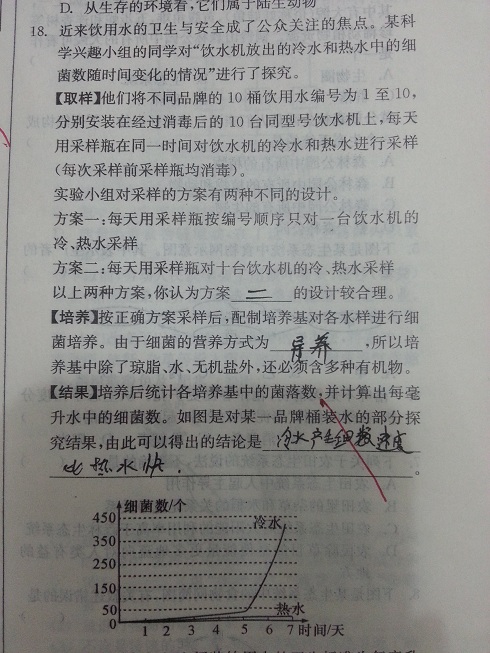 D. 从生存的环境看,它们属于陆生动物
18. 近来饮用水的卫生与安全成了公众关注的焦点。某科
学兴趣小组的同学对“饮水机放出的冷水和热水中的细
菌数随时间变化的情况”进行了探究。
【取样】他们将不同品牌的 10 桶饮用水编号为 1 至 10,
分别安装在经过消毒后的 10 台同型号饮水机上,每天
用采样瓶在同一时间对饮水机的冷水和热水进行采样
(每次采样前采样瓶均消毒)。
实验小组对采样的方案有两种不同的设计。
方案一:每天用采样瓶按编号顺序只对一台饮水机的
冷、热水采样
方案二:每天用采样瓶对十台饮水机的冷、热水采样
以上两种方案,你认为方案 二 的设计较合理。
【培养】按正确方案采样后,配制培养基对各水样进行细
菌培养。由于细菌的营养方式为 异养 ,所以培
养基中除了琼脂、水、无机盐外,还必须含多种有机物。
【结果】培养后统计各培养基中的菌落数,并计算出每毫
升水中的细菌数。如图是对某一品牌桶装水的部分探
究结果,由此可以得出的结论是 冷水产细菌数速度
比热水快 。
细菌数/个
450
350
250
150
50
0
冷水
热水
1 2 3 4 5 6 7 时间/天